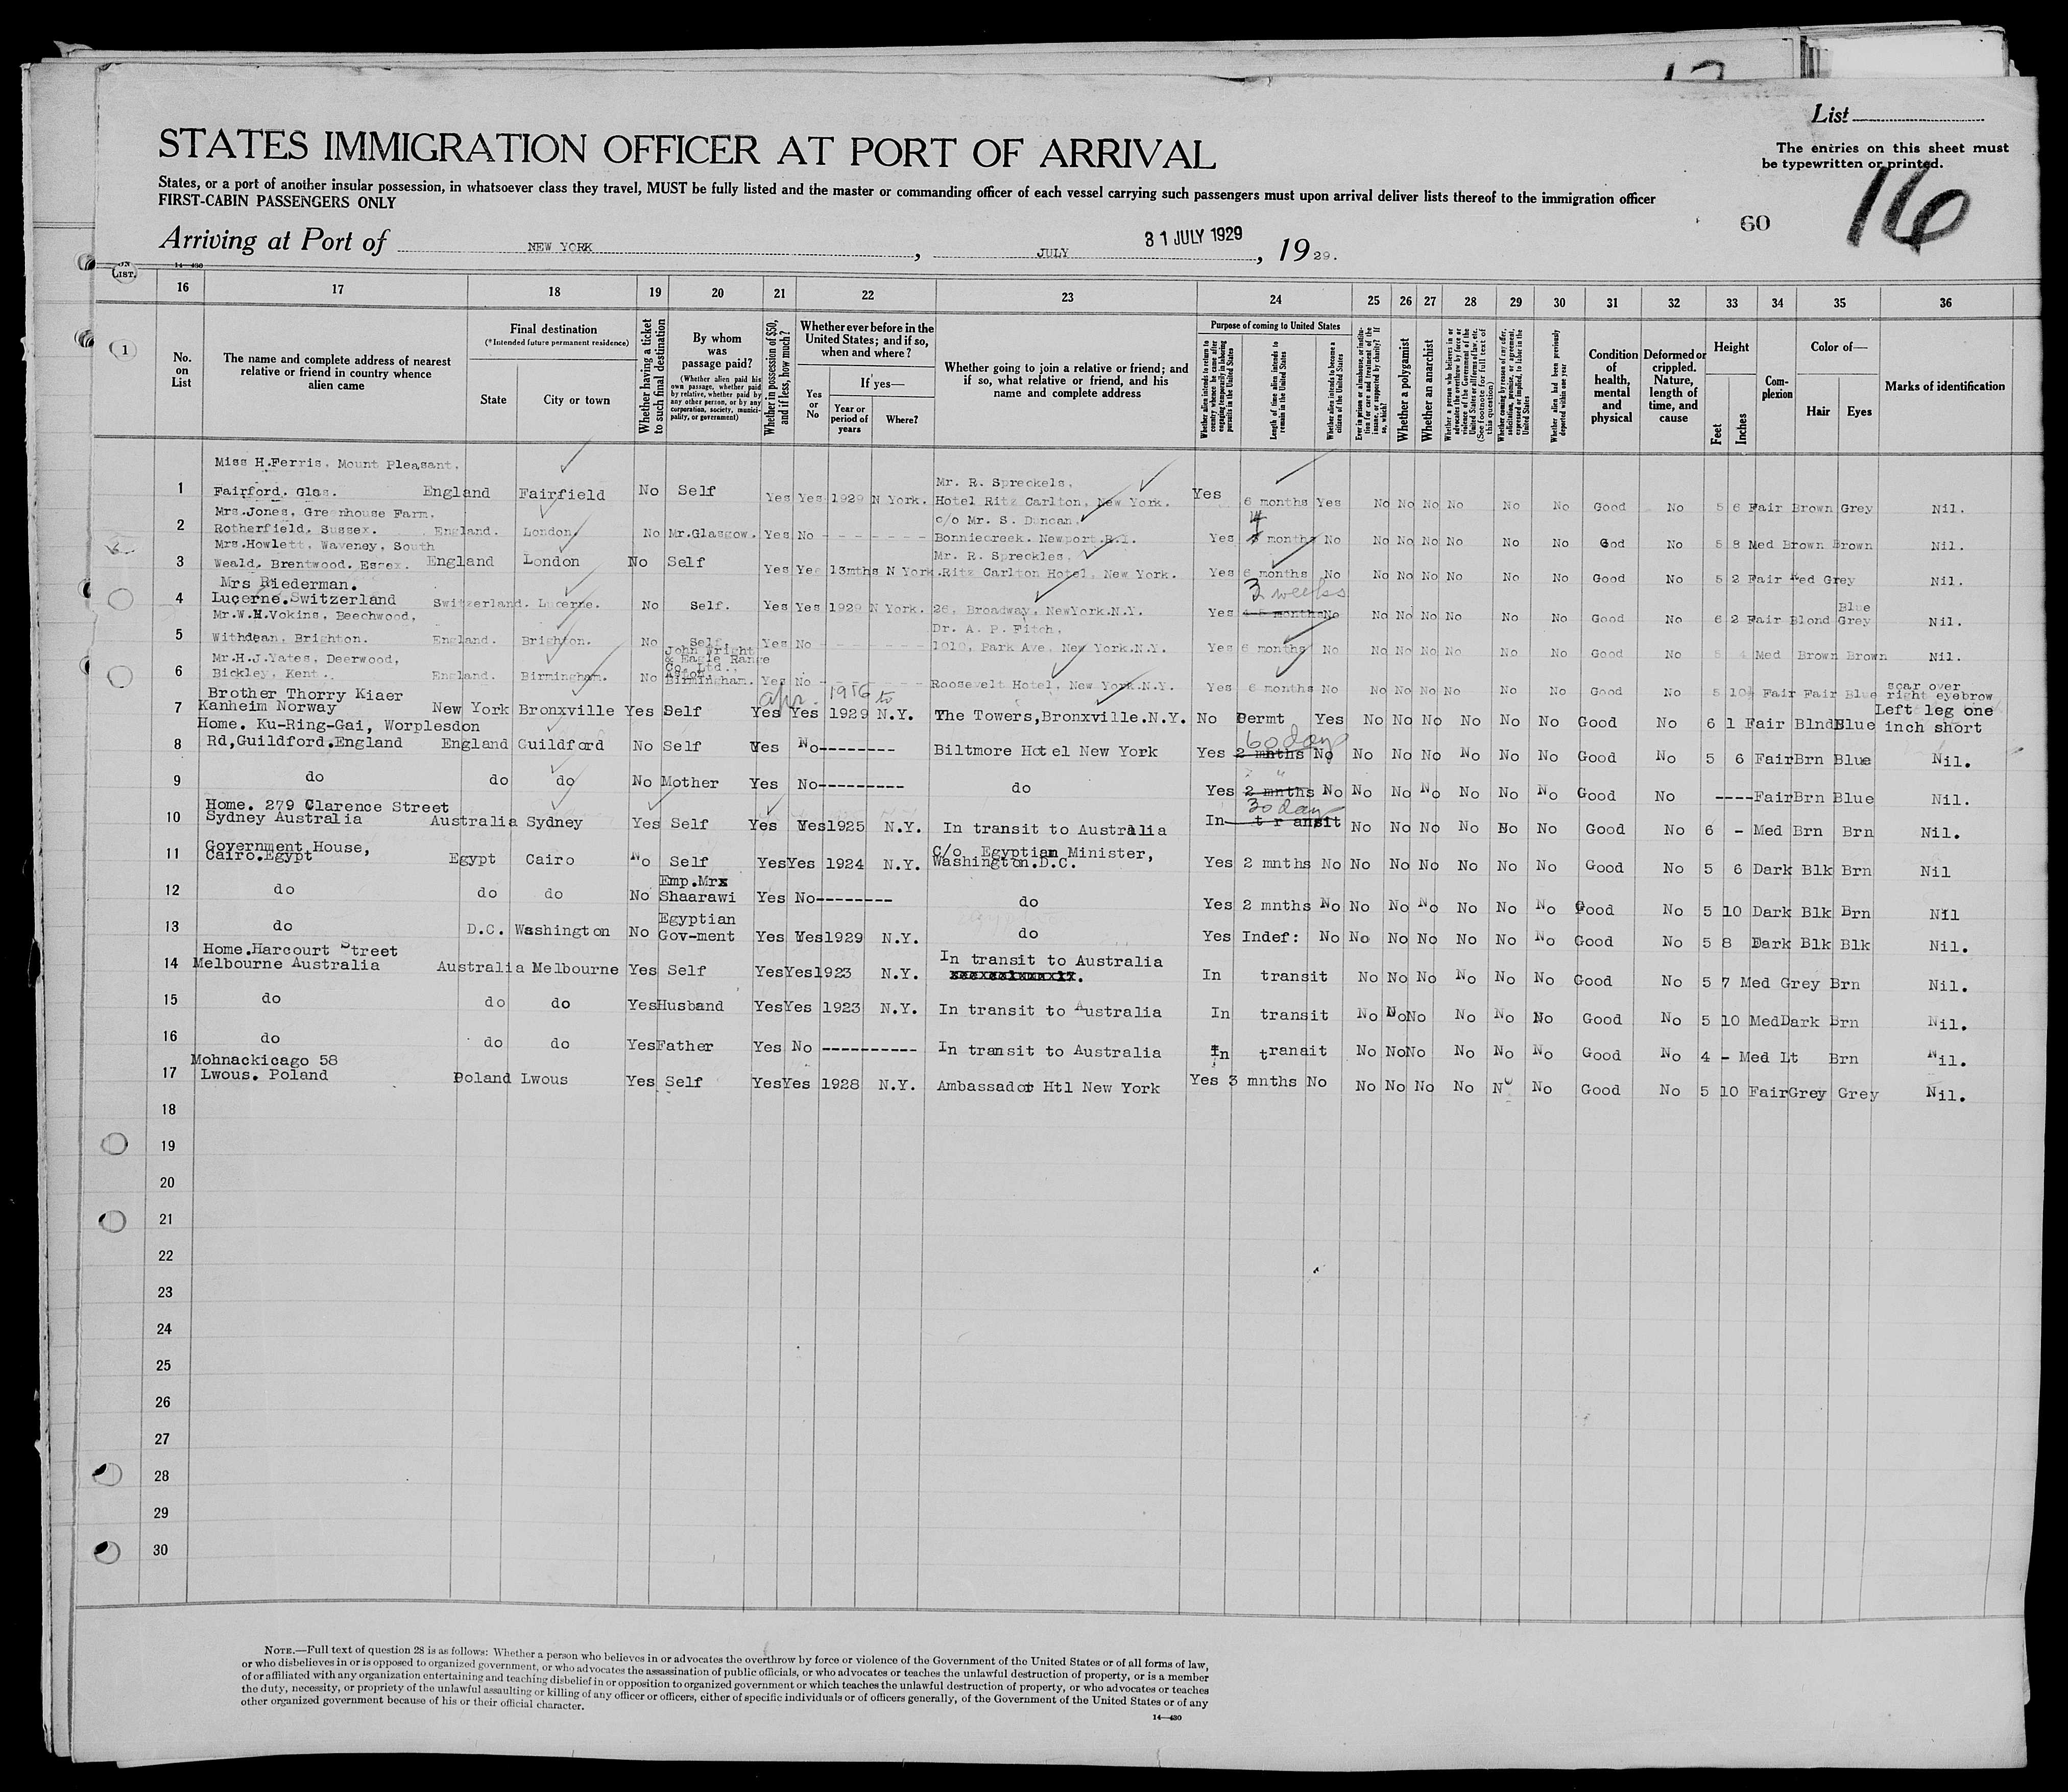 List
The entries on this sheet must
be typewritten or printed.
STATES IMMIGRATION OFFICER AT PORT OF ARRIVAL
States, or a port of another insular possession, in whatsoever class they travel, MUST be fully listed and the master or commanding officer of each vessel carrying such passengers must upon arrival deliver lists thereof to the immigration officer
FIRST-CABIN PASSENGERS ONLY
60
16
Arriving at Port of NEW YORK, JULY 31 JULY 1929, 1929.
14—430
LIST.
16 17 18 19 20 21 22 23 24 25 26 27 28 29 30 31 32 33 34 35 36
1
No. on List
The name and complete address of nearest relative or friend in country whence alien came
Final destination
(*Intended future permanent residence)
State
City or town
Whether having a ticket to such final destination
By whom was passage paid?
(Whether alien paid his own passage, whether paid by relative, whether paid by any other person, or by any corporation, society, municipality, or government)
Whether in possession of $50, and if less, how much?
Whether ever before in the United States; and if so, when and where?
Yes or No
If yes—
Year or period of years
Where?
Whether going to join a relative or friend; and if so, what relative or friend, and his name and complete address
Purpose of coming to United States
Whether alien intends to return to country whence he came after engaging temporarily in laboring pursuits in the United States
Length of time alien intends to remain in the United States
Whether alien intends to become a citizen of the United States
Ever in prison or almshouse, or institution for care and treatment of the insane, or supported by charity? If so, which?
Whether a polygamist
Whether an anarchist
Whether a person who believes in or advocates the overthrow by force or violence of the Government of the United States or all forms of law, etc. (See footnote for full text of this question)
Whether coming by reason of any offer, solicitation, promise, or agreement, expressed or implied, to labor in the United States
Whether alien had been previously deported within one year
Condition of health, mental and physical
Deformed or crippled. Nature, length of time, and cause
Height
Feet
Inches
Complexion
Color of—
Hair
Eyes
Marks of identification
Miss H.Ferris, Mount Pleasant, Mr. R. Spreckels,
1 Fairford. Glas. England Fairfield No Self Yes Yes 1929 N York. Hotel Ritz Carlton, New York. Yes 6 months Yes No No No No No No Good No 5 6 Fair Brown Grey Nil.
Mrs.Jones, Greenhouse Farm, c/o Mr. S. Duncan, 4
2 Rotherfield, Sussex. England. London No Mr.Glasgow. Yes No - - - - - - - Bonniecreek. Newport.R.I. Yes months No No No No No No No Good No 5 8 Med Brown Brown Nil.
Mrs.Howlett, Waveney, South Mr. R. Spreckles,
3 Weald, Brentwood. Essex. England London No Self Yes Yes 13mths N York. Ritz Carlton Hotel, New York. Yes 6 months No No No No No No No Good No 5 2 Fair Red Grey Nil.
Mrs Riederman. 3 weeks
4 Lucerne.Switzerland Switzerland. Lucerne. No Self. Yes Yes 1929 N York. 26, Broadway, NewYork.N.Y. Yes months No No No No No No No Good No 6 2 Fair Blond Blue Grey Nil.
Mr.W.H.Vokins, Beechwood, Dr. A. P. Fitch,
5 Withdean, Brighton. England. Brighton. No Self. Yes No - - - - - - - 1010, Park Ave, New York.N.Y. Yes 6 months No No No No No No No Good No 5 4 Med Brown Brown Nil.
Mr.H.J.Yates, Deerwood, John Wright & Eagle Range Co. Ltd., Aston,
6 Bickley, Kent. England. Birmingham. No Birmingham. Yes No - - - - Roosevelt Hotel, New York.N.Y. Yes 6 months No No No No No No No Good No 5 10½ Fair Fair Blue scar over right eyebrow
Brother Thorry Kiaer apr. 1916 to
7 Kanheim Norway New York Bronxville Yes Self Yes Yes 1929 N.Y. The Towers,Bronxville.N.Y. No Permt Yes No No No No No No Good No 6 1 Fair Blnd Blue Left leg one inch short
Home. Ku-Ring-Gai, Worplesdon 60 days
8 Rd,Guildford.England England Guildford No Self Yes No-------- Biltmore Hotel New York Yes 2 mnths No No No No No No No Good No 5 6 Fair Brn Blue Nil.
9 do do do No Mother Yes No--------- do Yes 2 mnths No No No No No No No Good No ---- Fair Brn Blue Nil.
Home. 279 Clarence Street 30 days
10 Sydney Australia Australia Sydney Yes Self Yes Yes 1925 N.Y. In transit to Australia In transit No No No No No No Good No 6 - Med Brn Brn Nil.
Government House, C/o Egyptian Minister,
11 Cairo.Egypt Egypt Cairo No Self Yes Yes 1924 N.Y. Washington.D.C. Yes 2 mnths No No No No No No No Good No 5 6 Dark Blk Brn Nil
Emp.Mrx
12 do do do No Shaarawi Yes No-------- do Yes 2 mnths No No No No No No No Good No 5 10 Dark Blk Brn Nil
Egyptian
13 do D.C. Washington No Gov-ment Yes Yes 1929 N.Y. do Yes Indef: No No No No No No No Good No 5 8 Dark Blk Blk Nil.
Home.Harcourt Street In transit to Australia
14 Melbourne Australia Australia Melbourne Yes Self Yes Yes 1923 N.Y. In transit No No No No No No Good No 5 7 Med Grey Brn Nil.
15 do do do Yes Husband Yes Yes 1923 N.Y. In transit to Australia In transit No No No No No No Good No 5 10 Med Dark Brn Nil.
16 do do do Yes Father Yes No ---------- In transit to Australia In tranait No No No No No No Good No 4 - Med Lt Brn Nil.
Mohnackicago 58
17 Lwous. Poland Poland Lwous Yes Self Yes Yes 1928 N.Y. Ambassador Htl New York Yes 3 mnths No No No No No No No Good No 5 10 Fair Grey Grey Nil.
18
19
20
21
22
23
24
25
26
27
28
29
30
NOTE.—Full text of question 28 is as follows: Whether a person who believes in or advocates the overthrow by force or violence of the Government of the United States or of all forms of law,
or who disbelieves in or is opposed to organized government, or who advocates the assassination of public officials, or who advocates or teaches the unlawful destruction of property, or is a member
of or affiliated with any organization entertaining and teaching disbelief in or opposition to organized government or which teaches the unlawful destruction of property, or who advocates or teaches
the duty, necessity, or propriety of the unlawful assaulting or killing of any officer or officers, either of specific individuals or of officers generally, of the Government of the United States or of any
other organized government because of his or their official character.
14—430